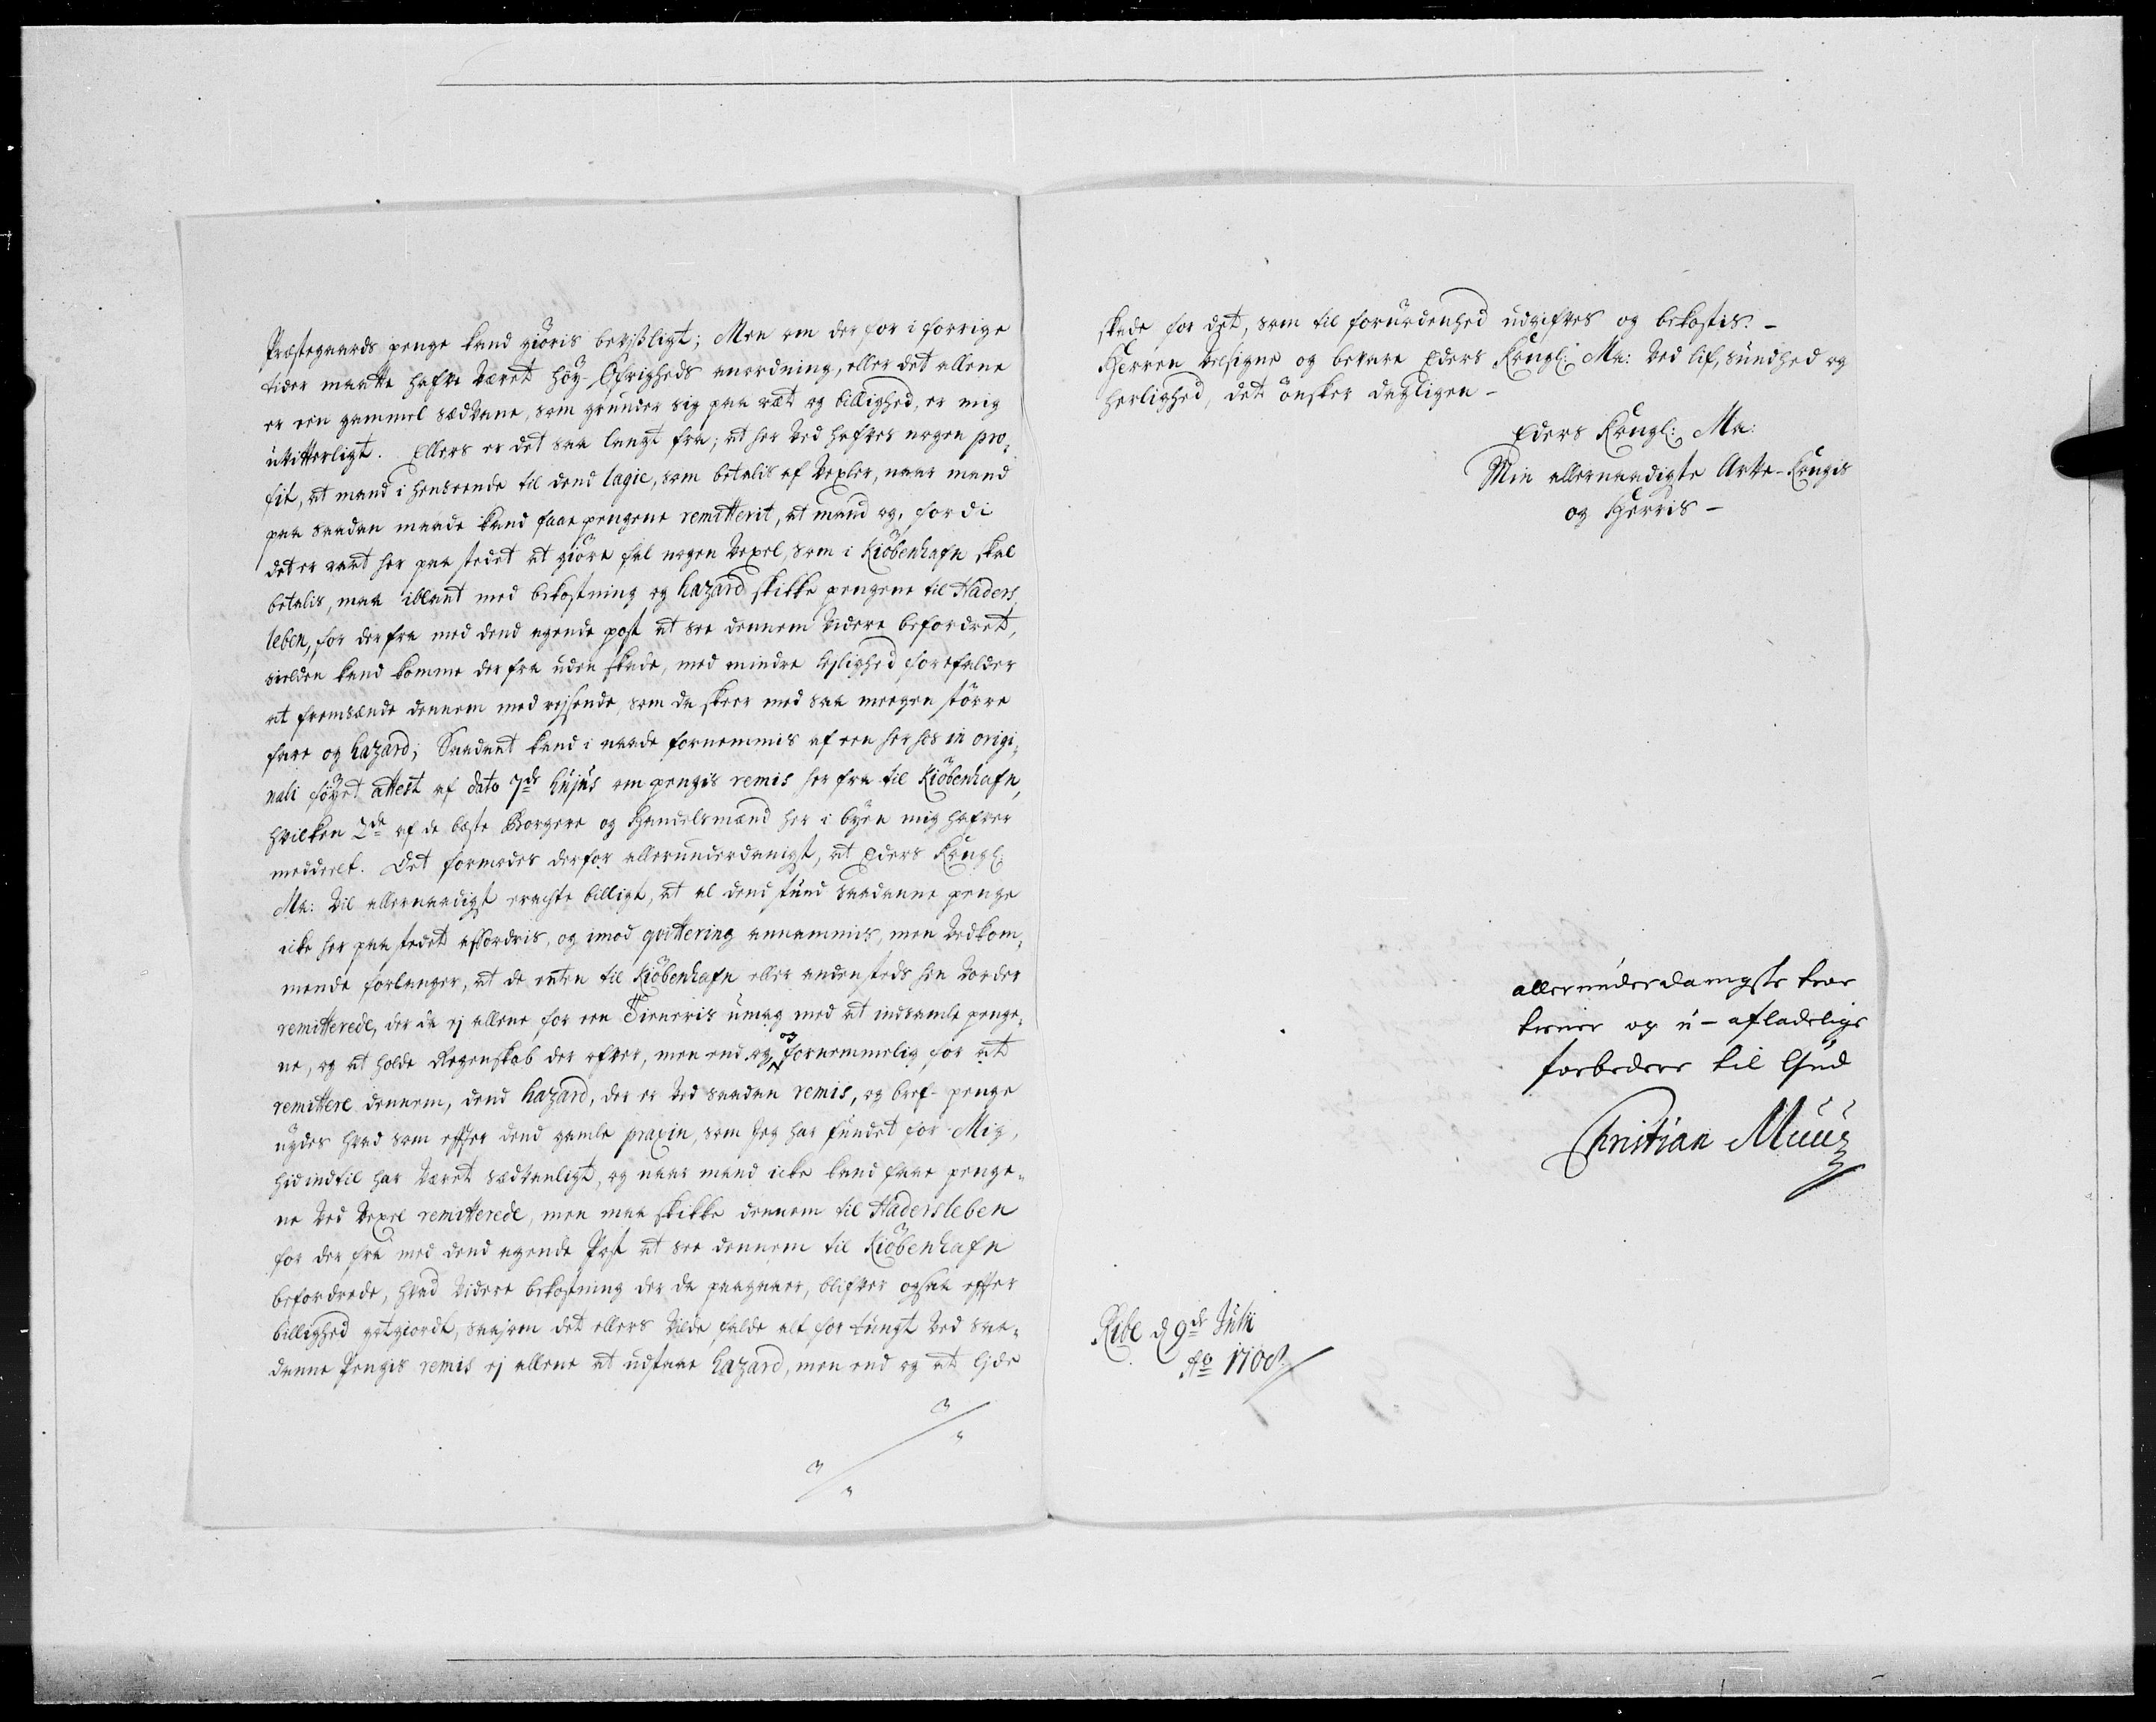 Præstegaards penge kand giöris bevisligt; Men om der for i forrige
tider maatte hafve været höy Öfrigheds anordning, eller det allene
er een gammel sædvane, som grunder sig paa ræt og billighed, er mig
uvitterligt. Ellers er det saa langt fra; at her ved hafves nogen pro,,
fit, at mand i henseende til dend lagie, som betalis af vexler, naar mand
paa saadan maade kand faae pengene remitterit, at mand og, fordi
det er rart her paa stedet at giöre fal nogen vexel, som i Kiöbenhafn skal
betalis, maa iblant med bekostning og hazard skikke pengene til Haders,,
leben, for der fra med dend agende post at see dennem videre befordret,
sielden kand komme der fra uden skade, med mindre lejlighed forefalder
at fremsænde dennem med rejsende, som da skeer med saa meegen större
fare og hazard; Saadant kand i naade fornemmis af een her hos in origi,,
nali föyet attest af dato 7de hujus om pengis remis her fra til Kiöbenhafn,
hvilken 2de af de beste Borgere og Handelsmænd her i byen mig hafver
meddeelt. Det formodes derfor allerunderdanigst, at Eders Kongl:
Ma: vil allernaadigst erachte billigt, at al dend stund saadanne penge
icke her paa stedet affordris, og imod qvittering annammis, men vedkom,,
mende forlanger, at de enten til Kiöbenhafn eller andensteds hen vorder
remitterede, der da ej allene for een Tieneris umag med at indsamle penge,,
ne, og at holde Regenskab der efter, men end og, og fornemmelig for at
remittere dennem, dend hazard, der er ved saadan remis, og bref-penge
nydes hvad som efter dend gamle praxin, som jeg har fundet for Mig,
hid indtil har været sædvanligt, og naar mand icke kand faae penge,,
ne ved Vexel remitterede, men maa skikke dennem til Hadersleben
for der fra med dend agende Post at see dennem til Kiöbenhafn
befordrede, hvad videre bekostning der da paagaaer, blifver ogsaa efter
billighed gotgiordt, saasom det ellers vilde falde alt for tungt ved saa,,
danne Pengis remis ej allene at udstaae hazard, men end og at lide
skade for det, som til fornödenhed udgifves og bekostis. -
Herren velsigne og bevare Eders Kongl: Ma: ved lif, sundhed og
herlighed, det önsker dagligen -
Eders Kongl: Ma:
Min allernaadigste Arve-Kongis
og Herris -
allerunderdanigste troe
tiener og u-afladelige
forbedere til Gud
Christian Muus
Ribe d 9de Julii
Ao 1708